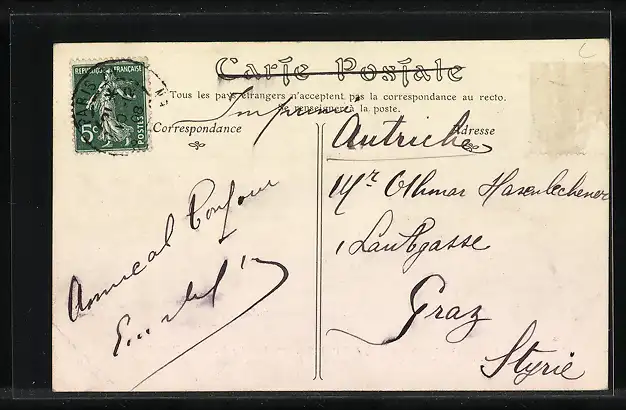 Carte Postale
Tous les pays étrangers n'acceptent pas la correspondance au recto.
Se renseigner à la poste.
REPUBLIQUE FRANÇAISE
PARIS
5c
POSTES
Imprimé
Correspondance
Adresse
Autriche
Mr Othmar Hasenlechener
Graz
Styrie
Amical Bonjour